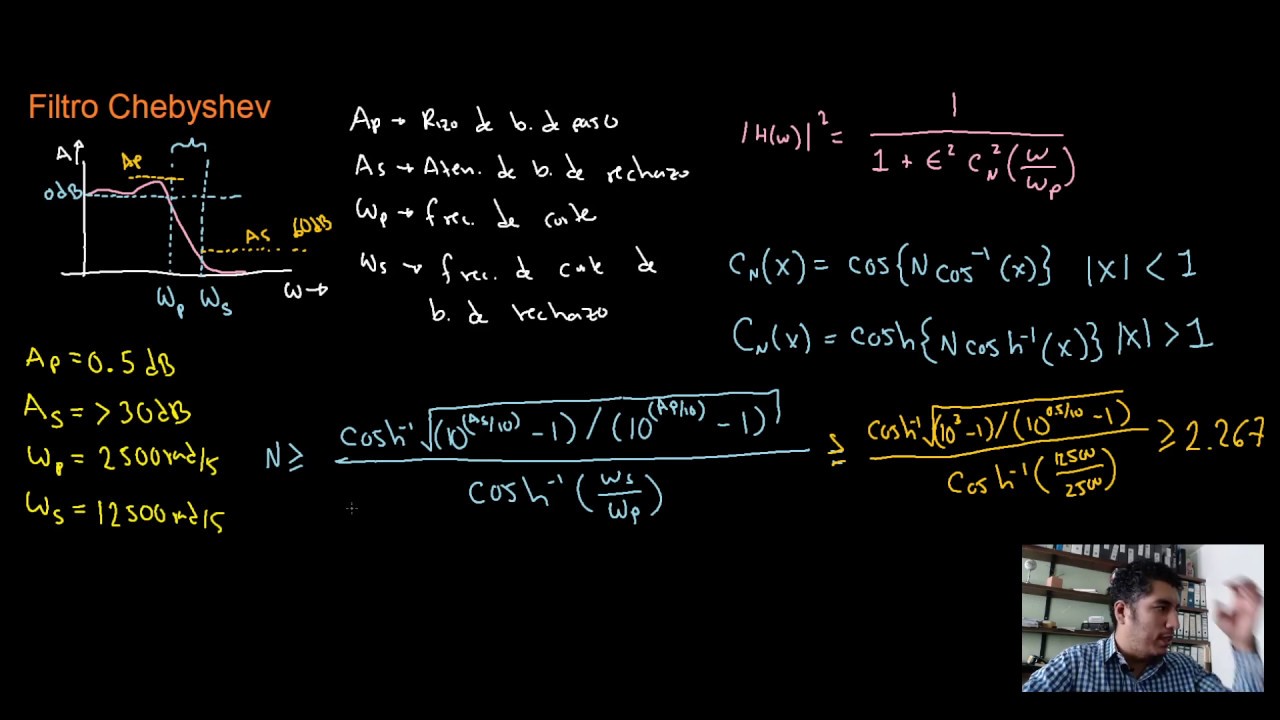 Filtro Chebyshev
A
Ap
0dB
As 60dB
ωp ωs ω→
Ap → Rizo de b. de paso
As → Aten. de b. de rechazo
ωp → frec. de corte
ωs → frec. de corte de
b. de rechazo
|H(ω)|² = 1 / (1 + ϵ² C_N² (ω/ωp))
C_N(x) = cos{N cos⁻¹(x)} |x| < 1
C_N(x) = cosh{N cosh⁻¹(x)} |x| > 1
Ap = 0.5 dB
As = > 30dB
ωp = 2500 rad/s
ωs = 12500 rad/s
N ≥ cosh⁻¹ √((10^(As/10) - 1) / (10^(Ap/10) - 1)) / cosh⁻¹ (ωs/ωp) ≥ cosh⁻¹ √((10³ - 1) / (10^(0.5/10) - 1)) / cosh⁻¹ (12500/2500) ≥ 2.267